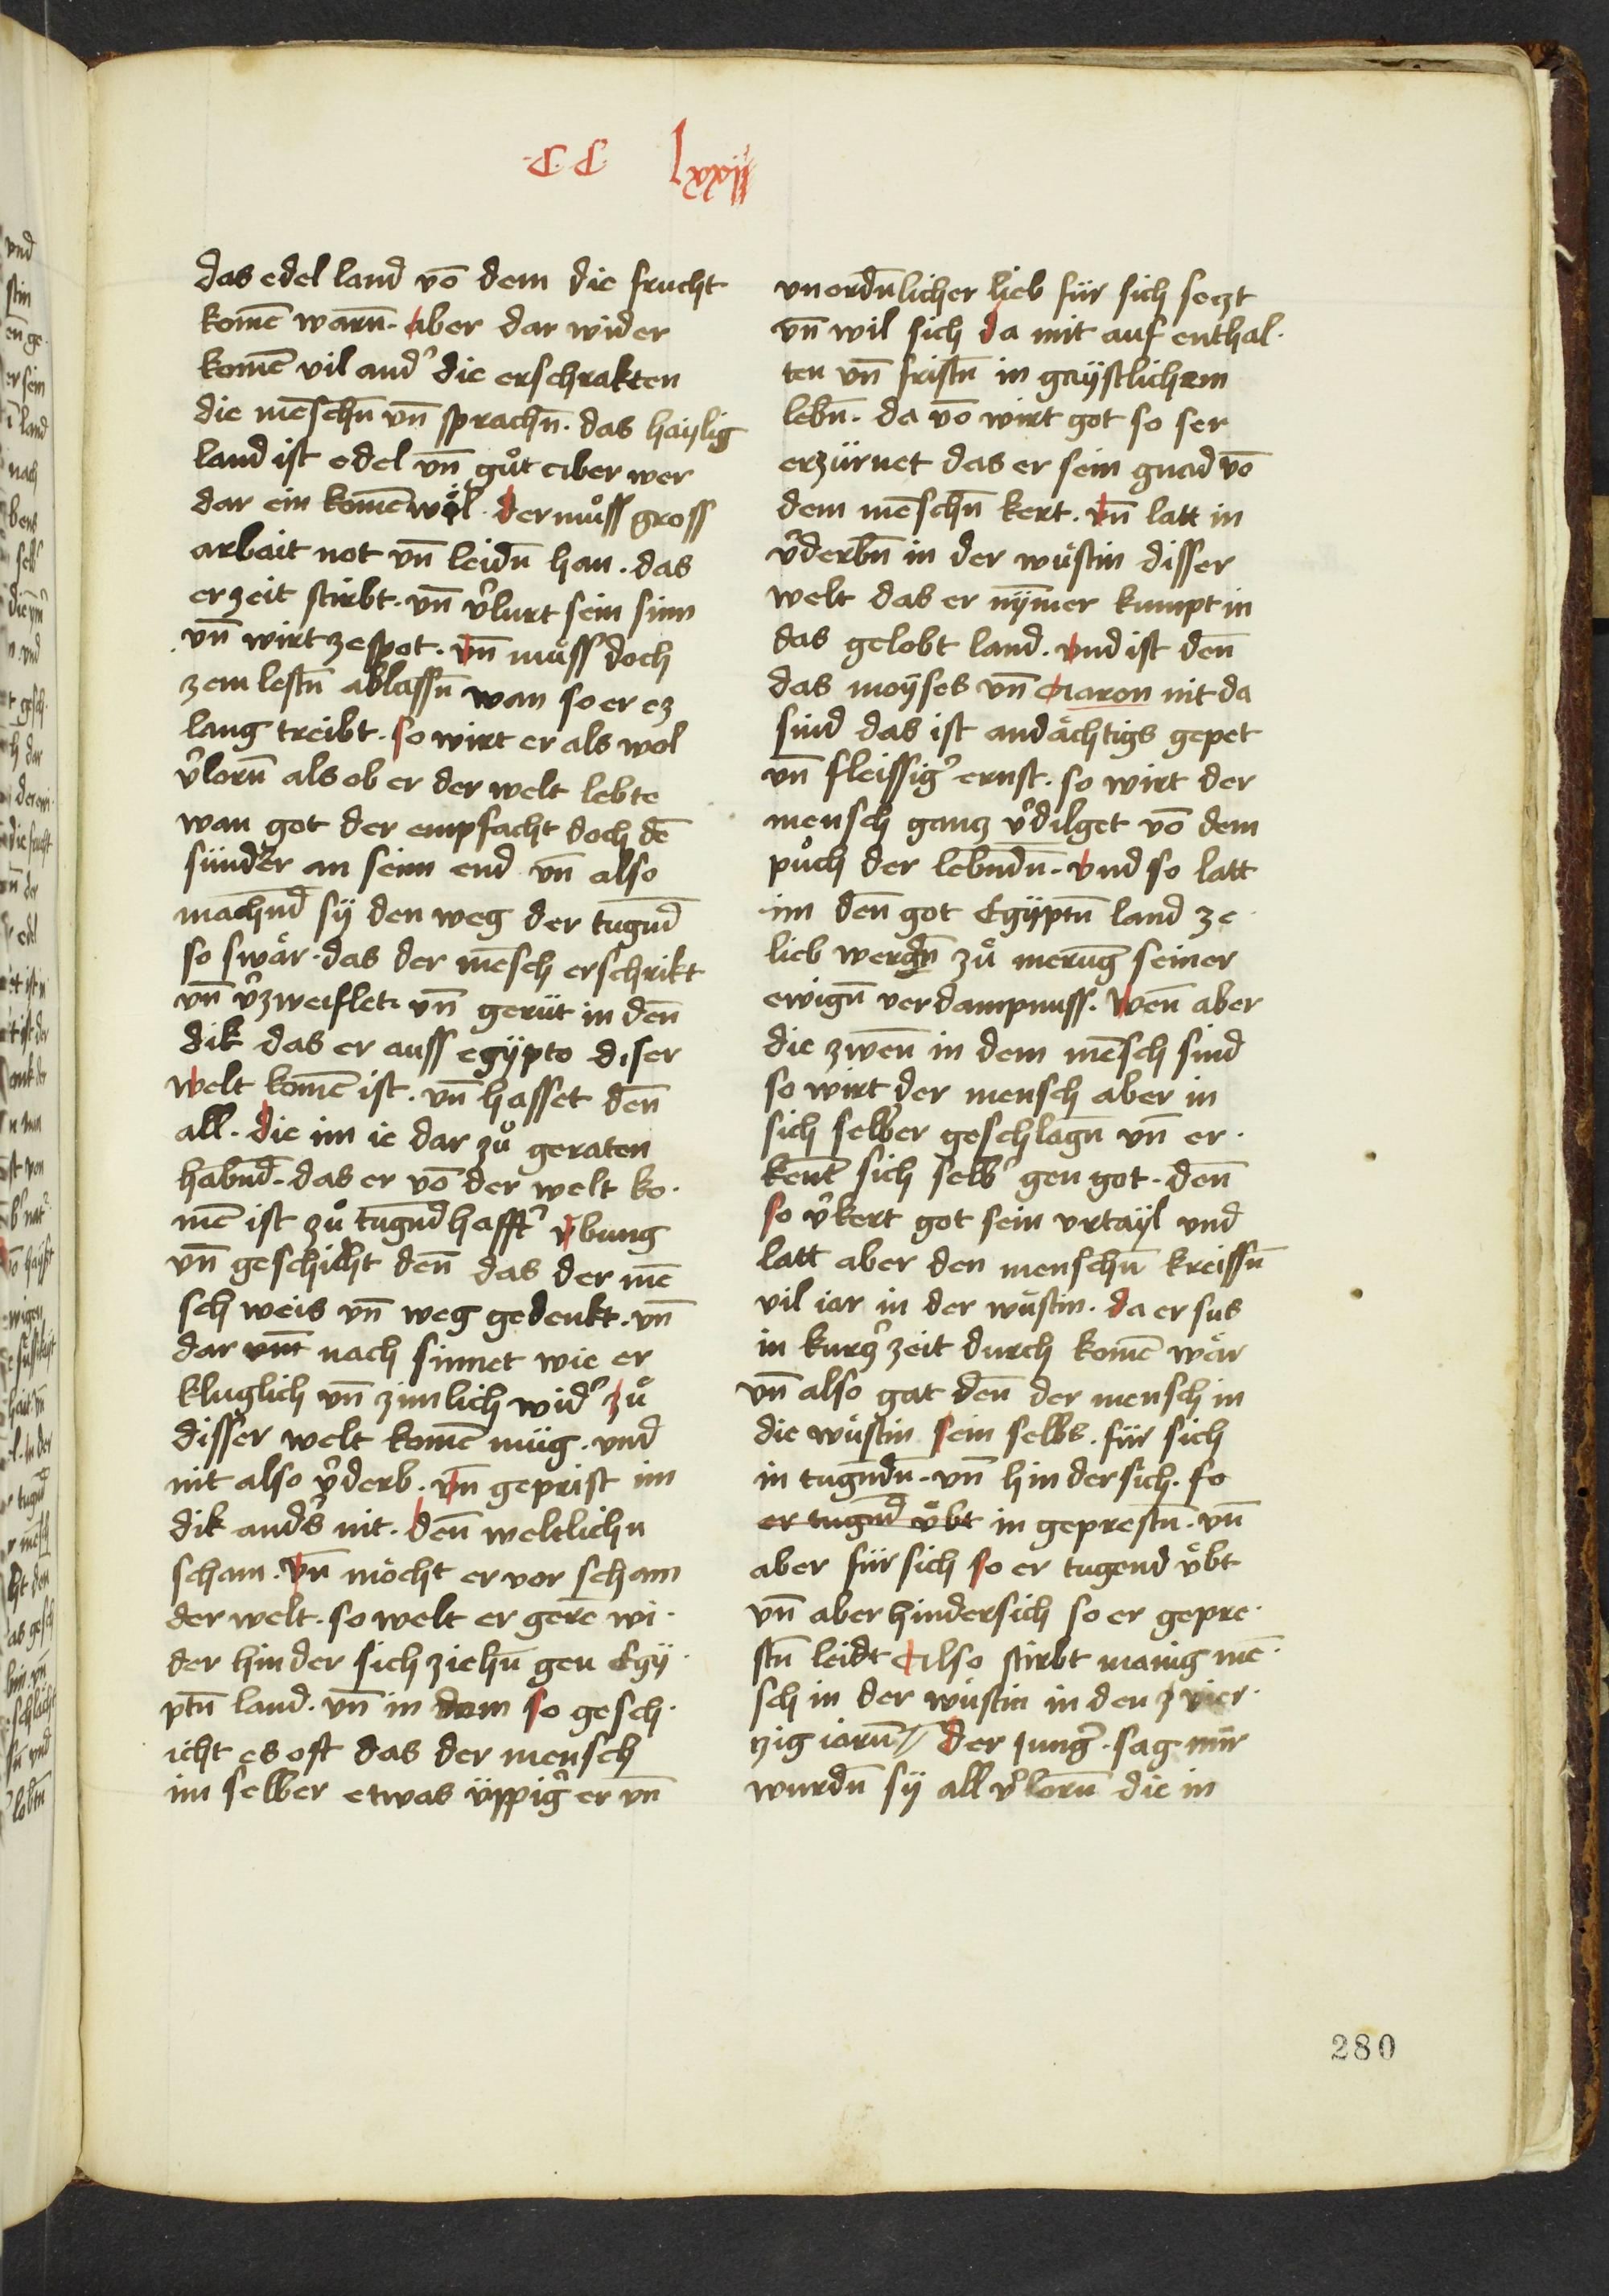 CC lxxij
das edel land vō dem die frucht
komē warn̄. aber dar wider
komē vil and᷑ die erschrakten
die mēschn̄ vn̄ sprachn̄. das haylig
land ist edel vn̄ gůt aber wer
dar ein komē wöl. der můss gross
arbait not vn̄ leidn̄ han. das
er zeit stirbt. vn̄ v᷑lurt sein sinn
vn̄ wirt ze spot. vn̄ můss doch
zem lestn̄ ablassn̄ wan so er ez
lang treibt. so wirt er als wol
v᷑lorn̄ als ob er der welt lebte
wan got der empfacht doch dē
sünder an seim end vn̄ also
machnd̄ sy den weg der tugnd̄
so swär. das der mēsch erschrikt
vn̄ v᷑zweiflet. vn̄ gerüt in den̄
dik das er auss egÿpto diser
welt komē ist. vn̄ hasset den̄
all. die im ie dar zů geraten
habnd̄. das er vō der welt ko.
mē ist zů tugnd̄haffT᷑ v̈bung
vn̄ geschicht den̄ das der mē
sch weis vn̄ weg gedenkt. vn̄
dar vm̄ nach sinnet wie er
kluglich vn̄ zimlich wid᷑ zů
disser welt komē müg. vnd
nit also v᷑derb. vn̄ geprist im
dik and᷑s nit. den̄ weltlichn
scham. vn̄ möcht er vor scham
der welt. so welt er gerē wi.
der hinder sich ziehn̄ gen Egÿ.
ptn̄ land. vn̄ in dem so gesch.
icht es oft das der mensch
im selber etwas üppig᷑ er vn̄
vnordn̄licher lieb für sich seczt
vn̄ wil sich da mit auf enthal.
ten vn̄ fristn̄ in gaÿstlichem
lebn̄. da vō wirt got so ser
erzürnet das er sein gnad vō
dem mēschn̄ kert. vn̄ latt in
v᷑derbn̄ in der wůstin disser
welt das er nÿmer kumpt in
das gelobt land. vnd ist den̄
das moÿses vn̄ Aaron nit da
sind das ist andächtigs gepet
vn̄ fleissig᷑ ernst. so wirt der
mensch gancz v᷑dilget vō dem
půch der lebndn̄. vnd so latt
im den̄ got Egÿptn̄ land ze
lieb werdn̄ zů merung seiner
ewign̄ verdampnuss. Wen̄ aber
die zwen̄ in dem mēsch sind
so wirt der mensch aber in
sich selber geschlagn̄ vn̄ er.
kent sich selb᷑ gen got. den̄
so v᷑kert got sein vrtaÿl vnd
latt aber den menschn̄ kreissn̄
vil iar in der wůstin. da er sus
in kurcz᷑ zeit durch komē wär
vn̄ also gat den̄ der mensch in
die wůstin sein selbs. für sich
in tugndn̄. vn̄ hindersich. so
er tugnd̄ v̈bt in geprestn̄. vn̄
aber für sich so er tugend v̈bt
vn̄ aber hindersich so er gepre.
stn̄ leidt Also stirbt manig mē.
sch in der wůstin in den vier.
zig iarn̄ // Der Jung᷑. sag mir
wurdn̄ sy all v᷑lorn̄ die in
280